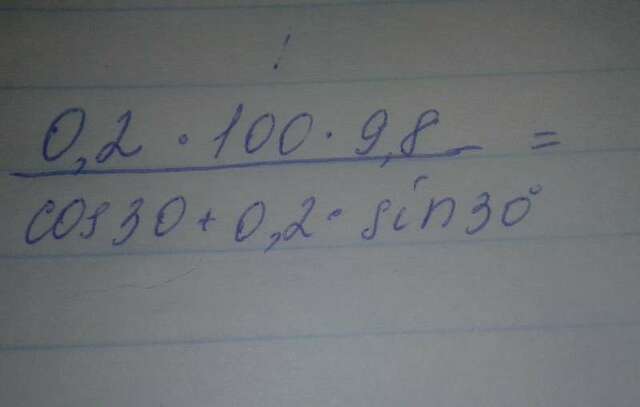 0,2 · 100 · 9,8 =
cos30 + 0,2 · sin30°